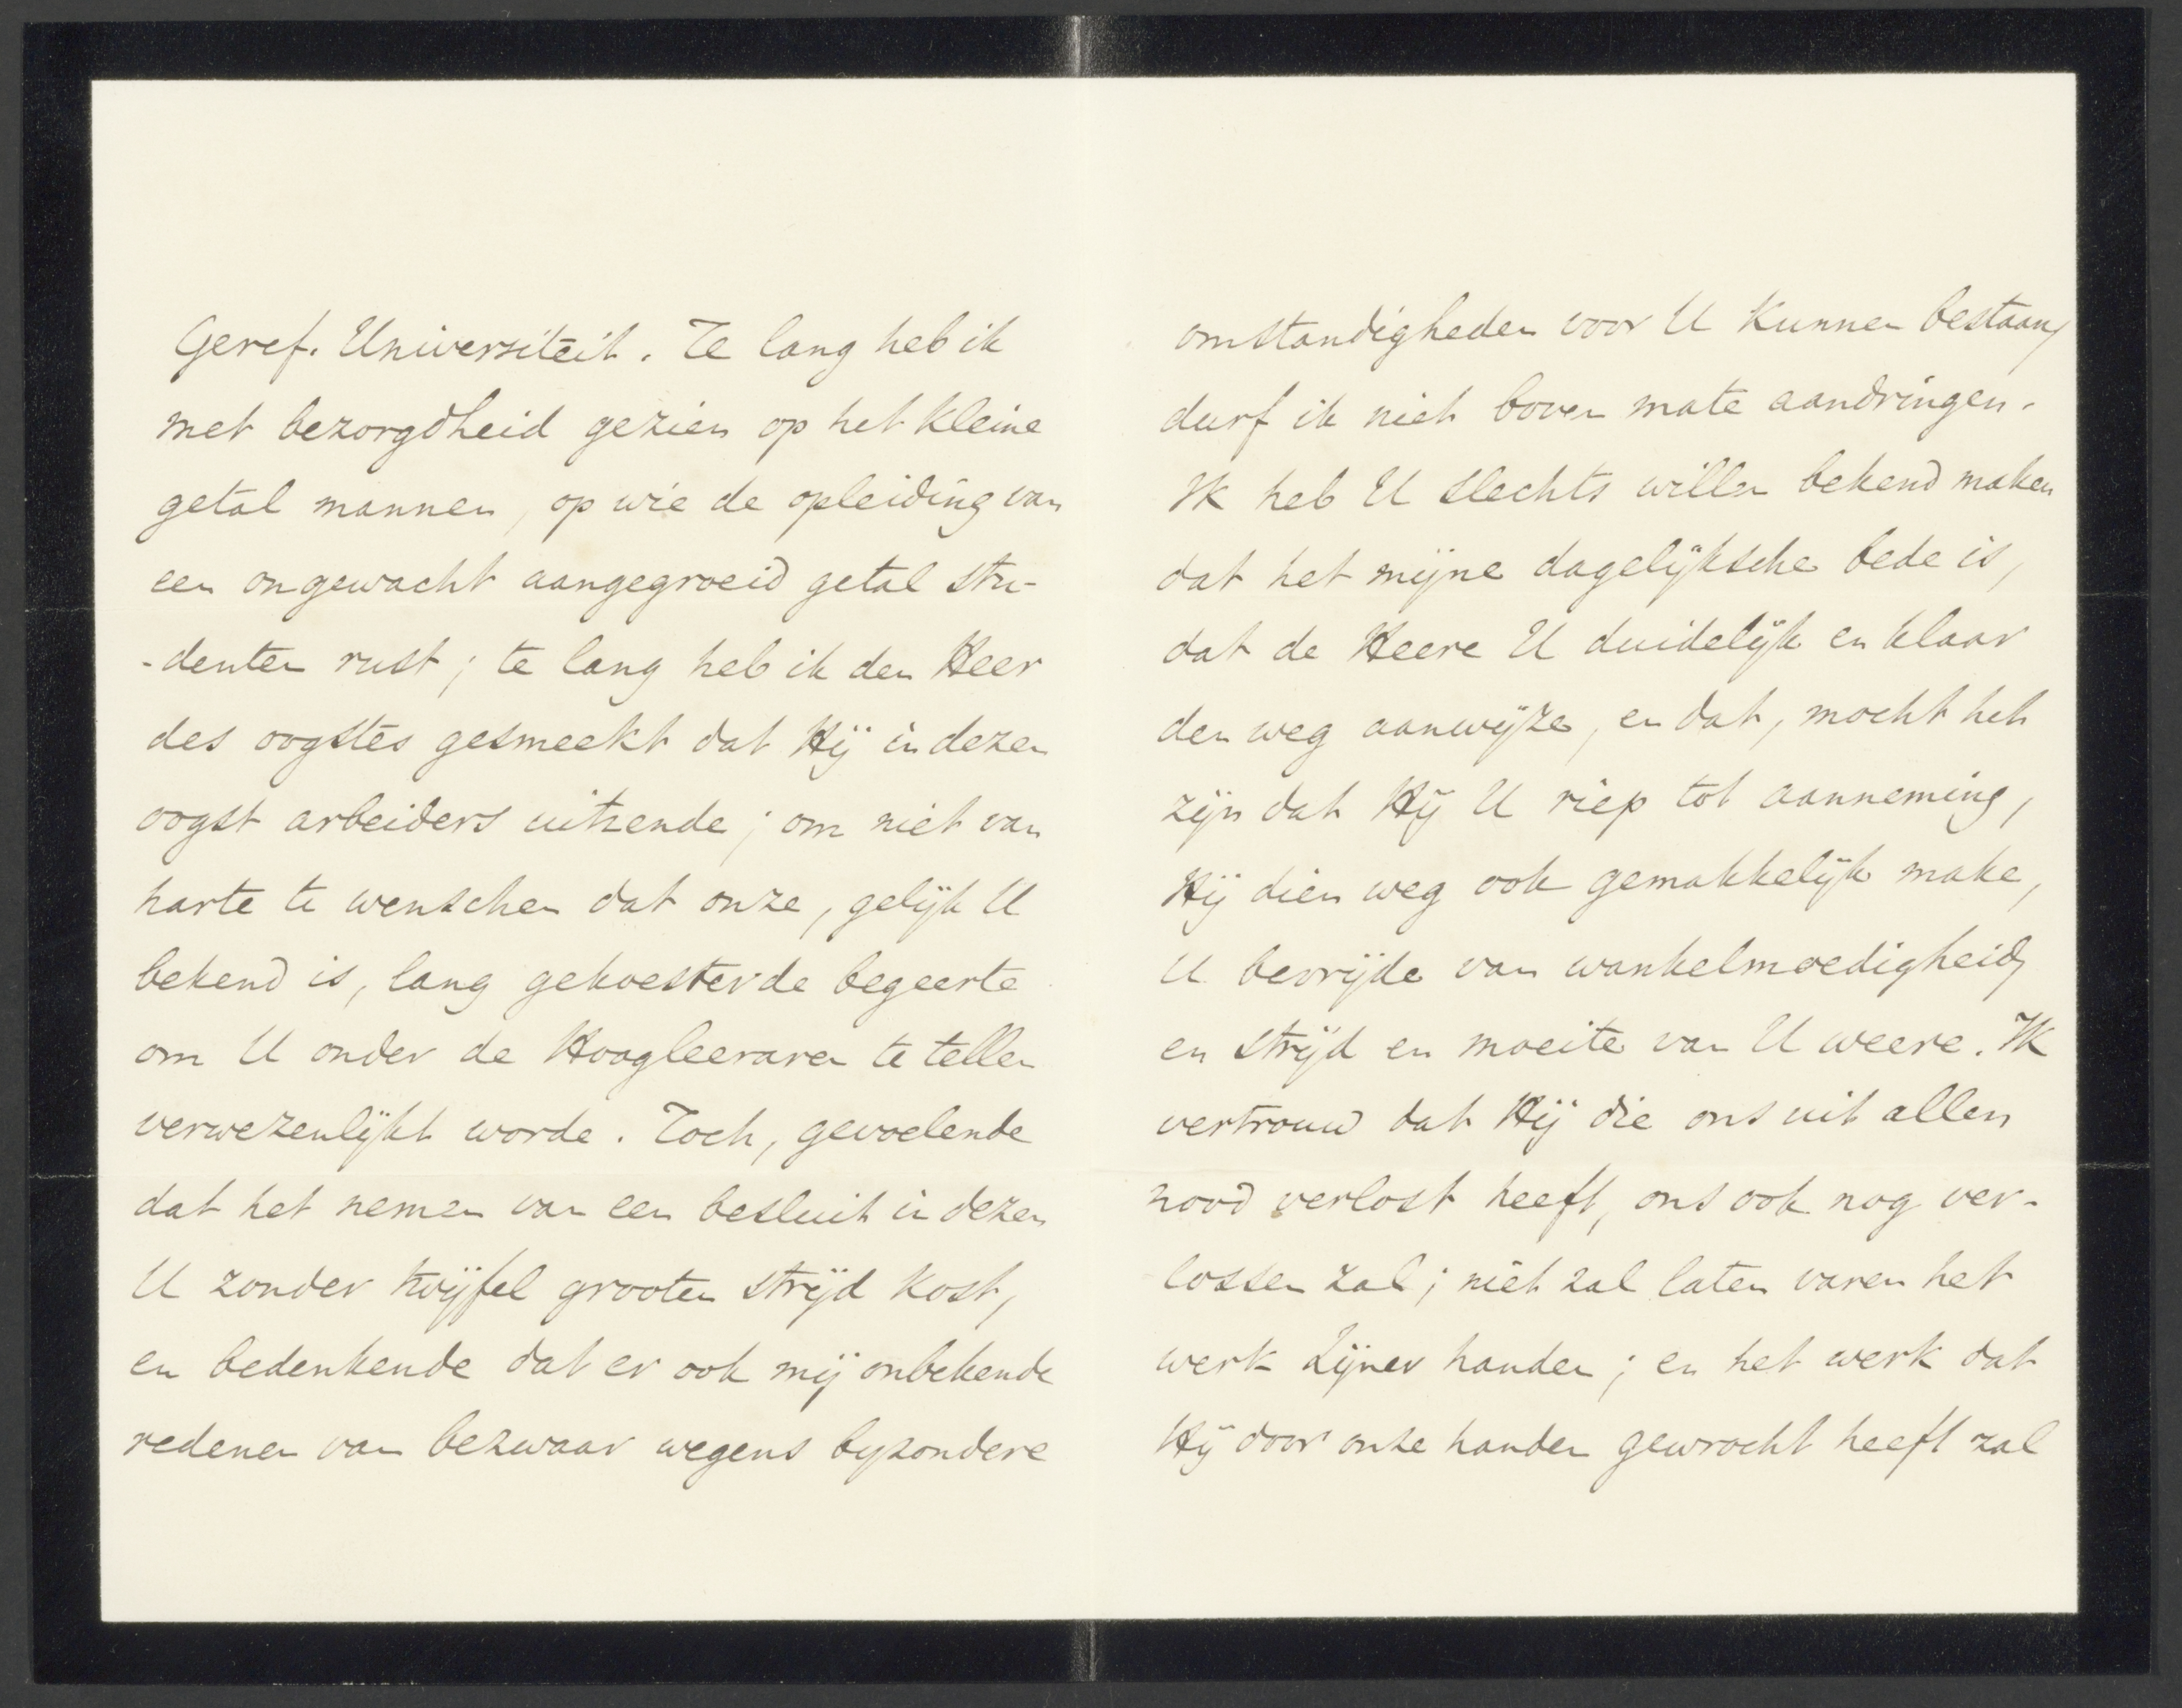 Geref. Universiteit. Te lang heb ik
met bezorgdheid gezien op het kleine
getal mannen, op wie de opleiding van
een ongewacht aangegroeid getal stu-
-denten rust; te lang heb ik den Heer
des oogstes gesmeekt dat Hij in dezen
oogst arbeiders uitzende; om niet van
harte te wenschen dat onze, gelijk U
bekend is, lang gekoesterde begeerte
om U onder de Hoogleeraren te tellen
verwezenlijkt worde. Toch, gevoelende
dat het nemen van een besluit in dezen
U zonder twijfel grooten strijd kost,
en bedenkende dat er ook mij onbekende
redenen van bezwaar wegens byzondere
omstandigheden voor U kunnen bestaan,
durf ik niet boven mate aandringen.
Ik heb U slechts willen bekend maken
dat het mijne dagelijksche bede is,
dat de Heere U duidelijk en klaar
den weg aanwijze, en dat, mocht het
zijn dat Hij U riep tot aanneming,
Hij dien weg ook gemakkelijk make,
U bevrijde van wankelmoedigheid,
en strijd en moeite van U weere. Ik
vertrouw dat Hij die ons uit allen
nood verlost heeft, ons ook nog ver-
lossen zal; niet zal laten varen het
werk Zijner handen; en het werk dat
Hij door onze handen gewrocht heeft zal